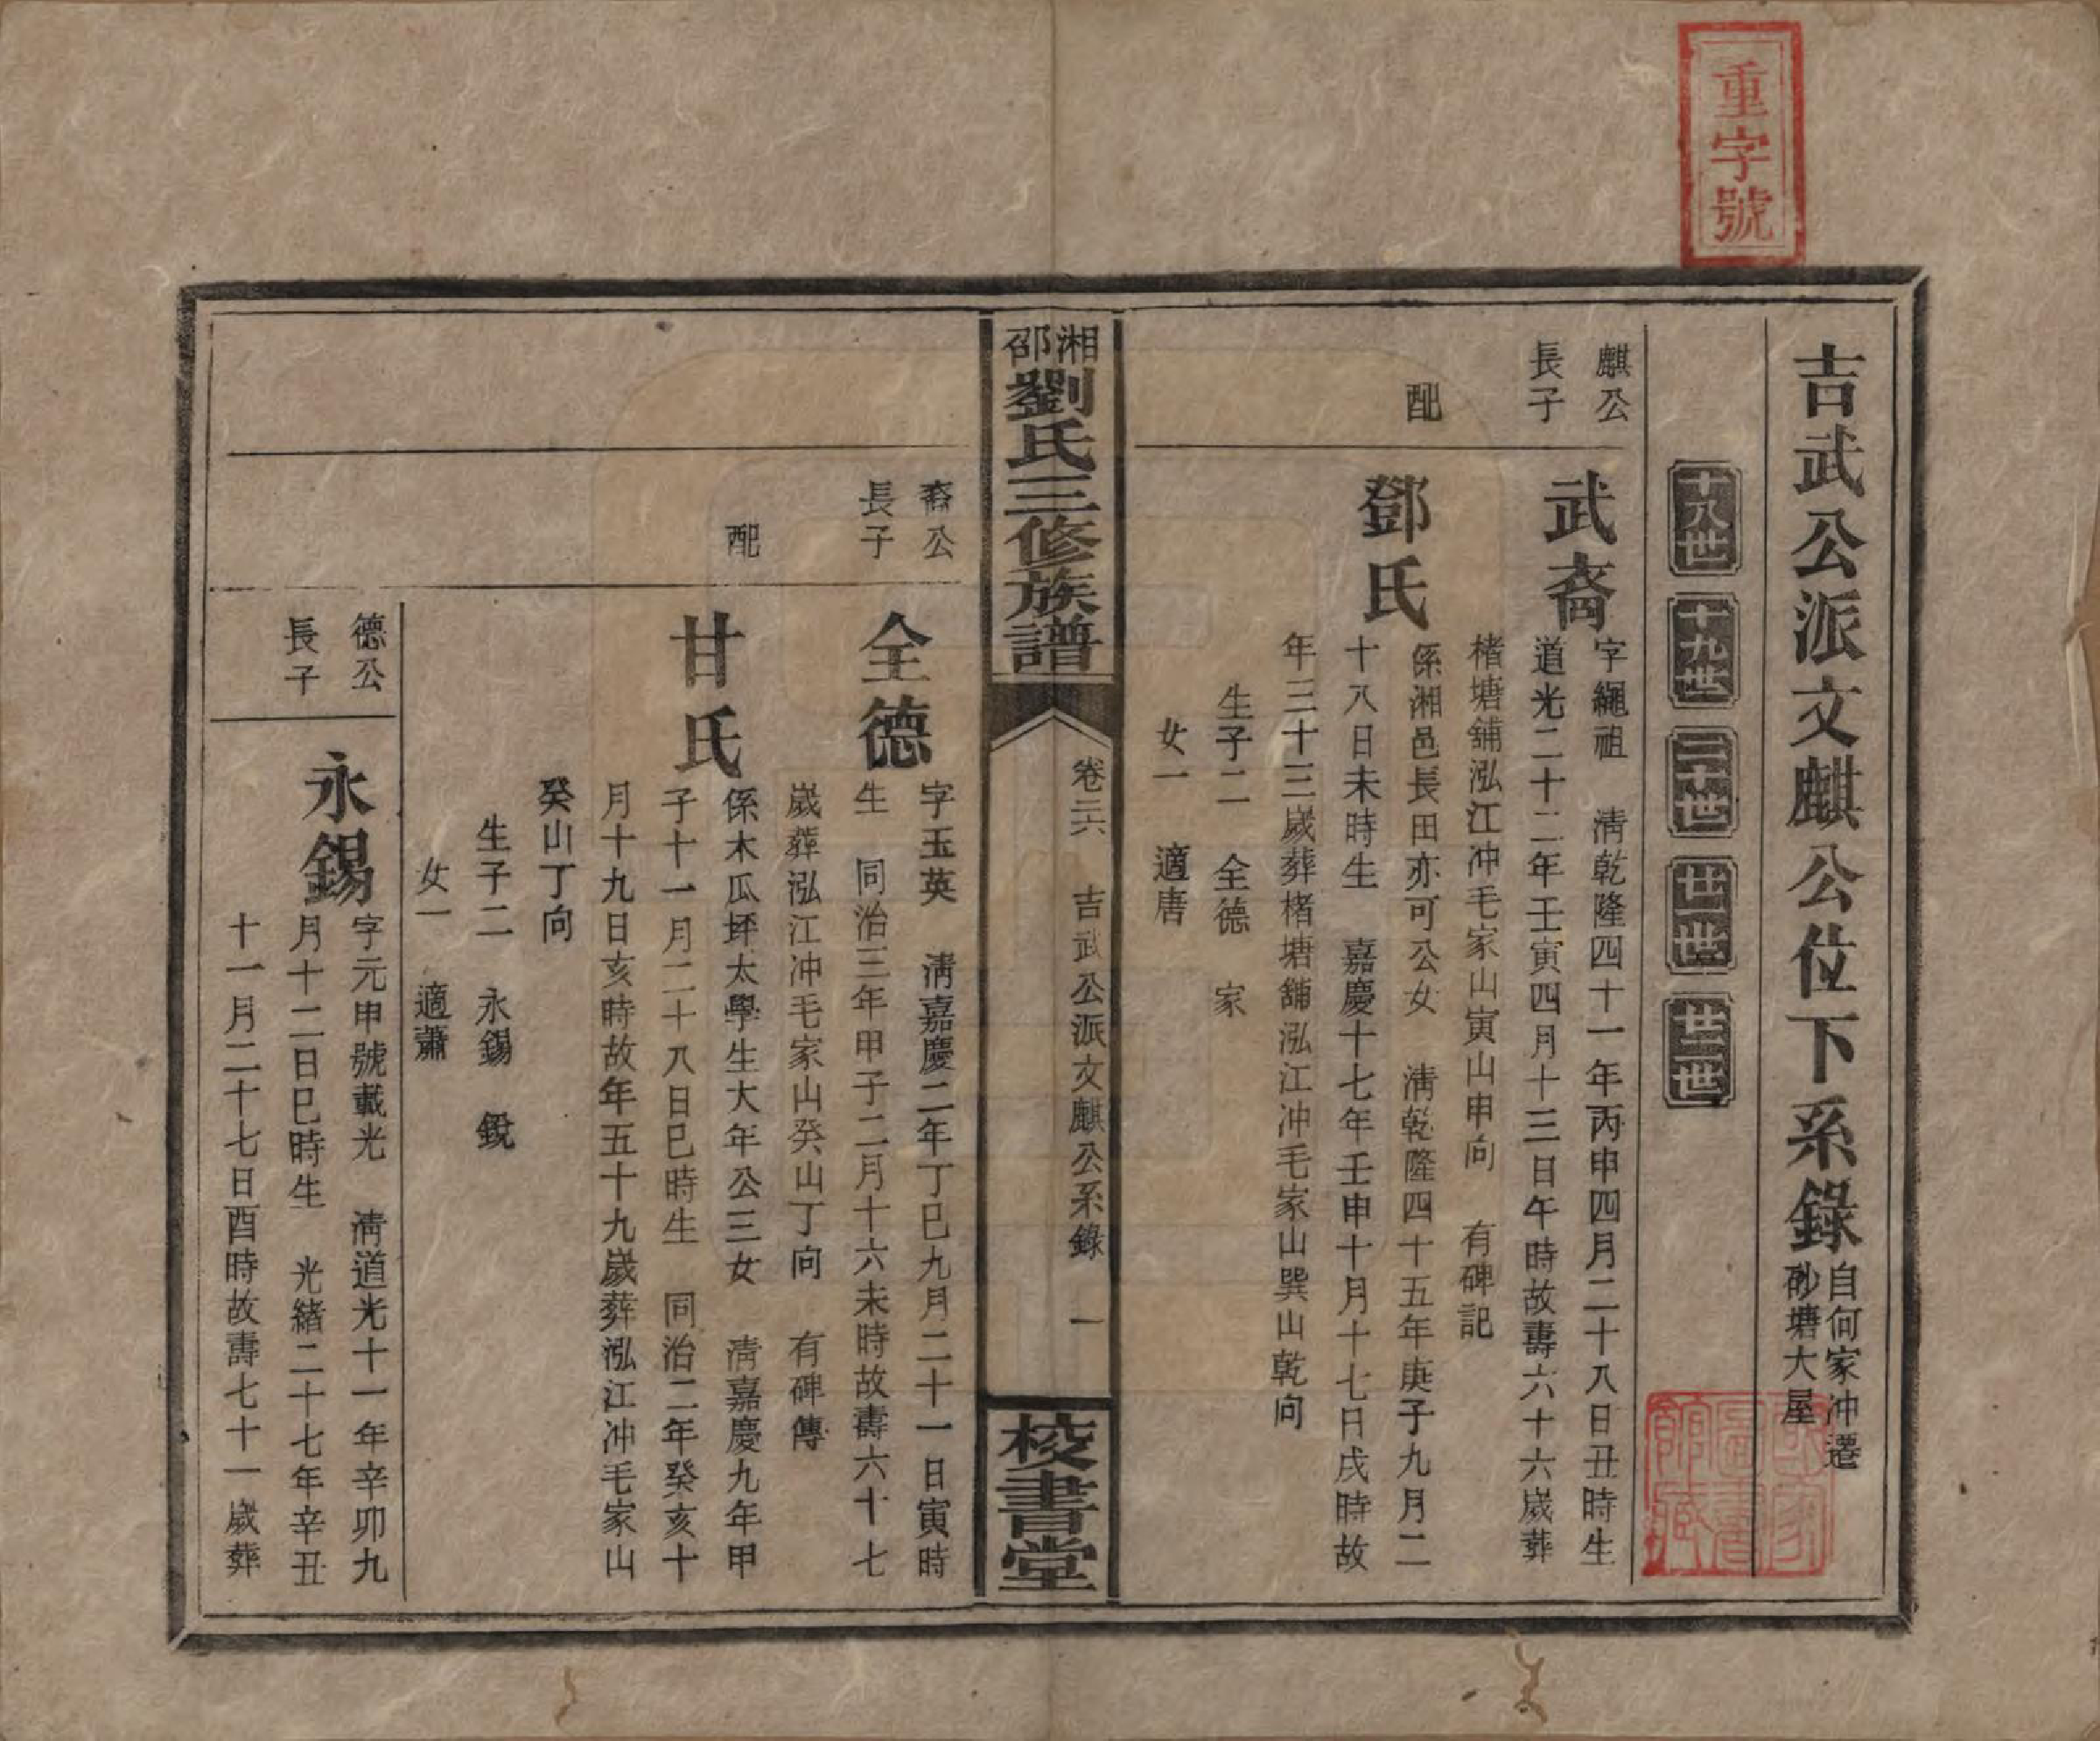 重字號
吉武公派文麒公位下系錄 自何家冲遷
砂塘大屋
十八世 十九世 二十世 廿一世 廿二世
麒公
長子
武裔
字繩祖 清乾隆四十一年丙申四月二十八日丑時生
道光二十二年壬寅四月十三日午時故壽六十六歲葬
楮塘舖泓江冲毛家山寅山申向 有碑記
配
鄧氏
係湘邑長田亦可公女 清乾隆四十五年庚子九月二
十八日未時生 嘉慶十七年壬申十月十七日戌時故
年三十三歲葬楮塘舖泓江冲毛家山巽山乾向
生子二 全德 家
女一 適唐
湘邵劉氏三修族譜
卷二六 吉武公派文麒公系錄 一
校書堂
裔公
長子
全德
字玉英 清嘉慶二年丁巳九月二十一日寅時
生 同治三年甲子二月十六未時故壽六十七
歲葬泓江冲毛家山癸山丁向 有碑傳
配
甘氏
係木瓜坪太學生大年公三女 清嘉慶九年甲
子十一月二十八日巳時生 同治二年癸亥十
月十九日亥時故年五十九歲葬泓江冲毛家山
癸山丁向
生子二 永錫 銳
女一 適蕭
德公
長子
永錫
字元申號載光 清道光十一年辛卯九
月十二日巳時生 光緒二十七年辛丑
十一月二十七日酉時故壽七十一歲葬